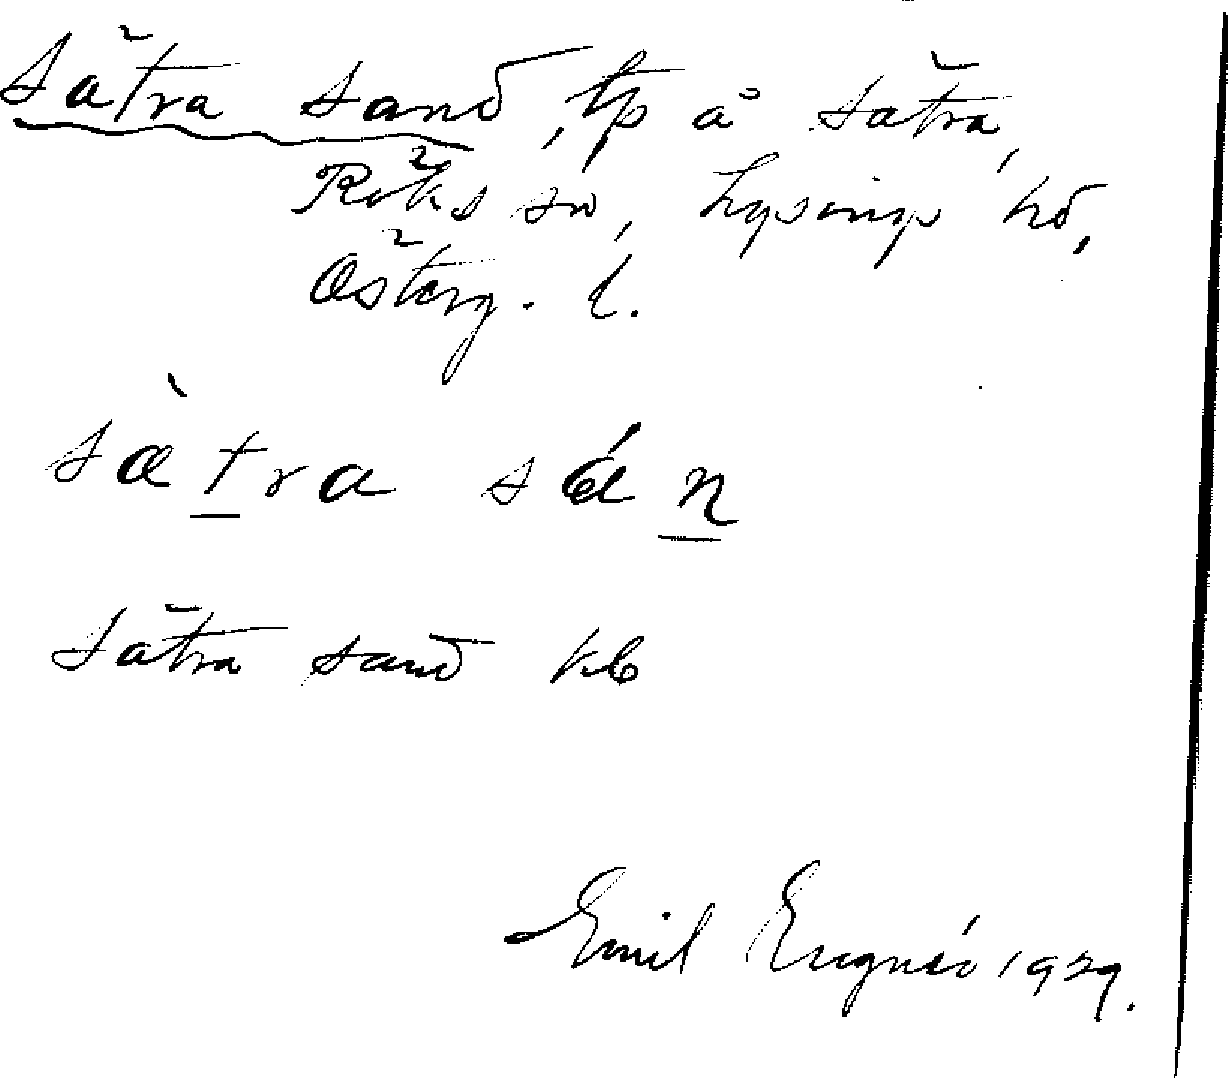 Sätra sand, tp å Sätra,
Röks sn, Lysings hd,
Österg. l.
sætra sán
Sätra sand kb
Emil 1929.